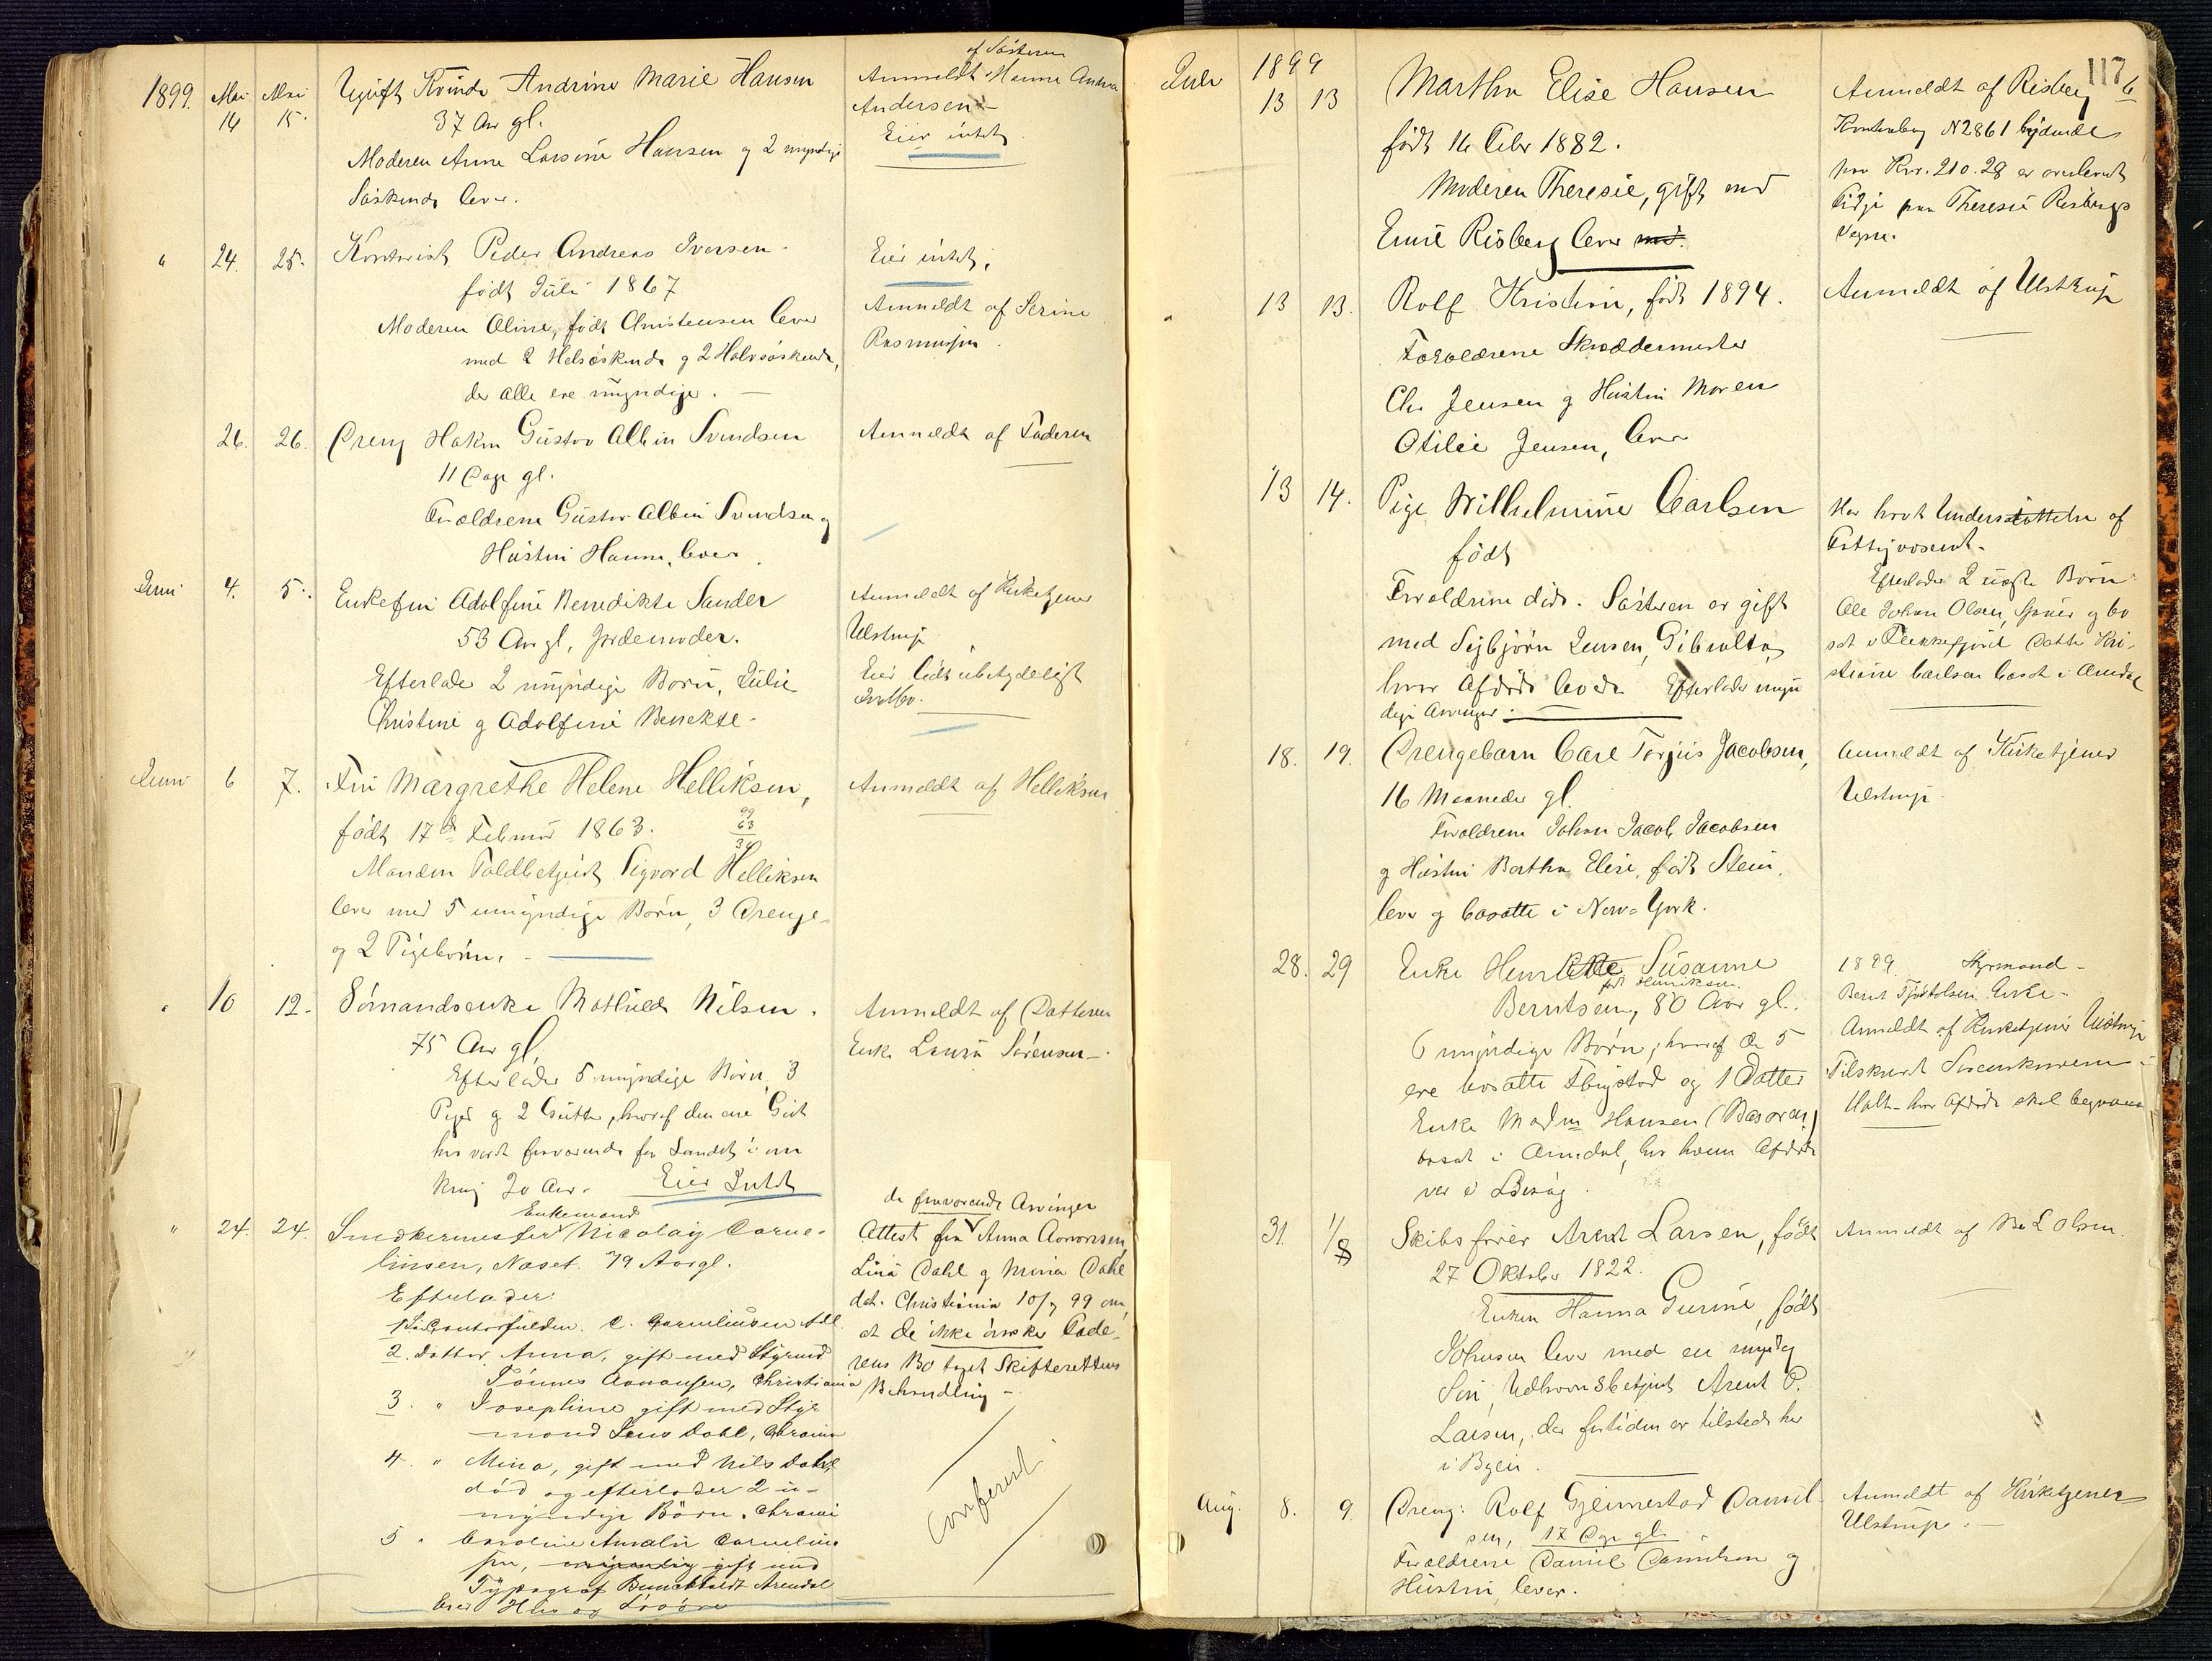 1899. Mai 14 Mai 15. Ugift Kvinde Andrine Marie Hansen
37 Aar gl.
Moderen Anne Larsine Hansen og 2 myndige
Søskende lever.
af Søsteren
Anmeldt Hanne
Andersen
Eier intet
" 24. 25. Kontorist Peder Andreas Iversen
født Juli 1867
Moderen Oline, født Christensen lever
med 2 Helsøskende og 2 Halvsøskende,
der alle ere myndige.
Eier intet.
Anmeldt af Serine
Rasmussen.
26. 26. Dreng Hakon Gustav Albin Svendsen
11 Dage gl.
Forældrene Gustav Albin Svendsen og
Hustru Hanna, lever
Anmeldt af Faderen
Juni 4. 5. Enkefru Adolfine Benedikte Sander
53 Aar gl, Jordemoder.
Efterlader 2 myndige Børn, Julie
Christine og Adolfine
Anmeldt af Kirketjener
Ulstrup
Eier lidt ubetydeligt
Indbo.
Juni 6 7. Fru Margrethe Helene Helliksen,
født 17de Februar 1863.
99
63
36
Manden Toldbetjent Sigvard Helliksen
lever med 5 umyndige Børn, 3 Drenge
og 2 Pigebørn.
Anmeldt af Helliksen
" 10 12. Sømandsenke Mathilde Nilsen.
75 Aar gl,
Efterlader 5 myndige Børn, 3
Piger og 2 Gutter, hvoraf den ene Gut
har vært fraværende fra Landet i om
kring 20 Aar. Eier Intet
Anmeldt af Datteren
Enke Laura Sørensen
" 24. 24. Enkemand
Snedkermester Nicolay Corne-
liusen, Naset. 79 Aar gl.
Efterlader:
1 C. Corneliusen
2. Datter Anna, gift med Styrmd
Tønnes Aanonsen, Christiania
3. " Josephine gift med Styr
mand Jens Dahl, Chrania
4. " Mina, gift med Nils Dahl
død og efterlader 2 u-
myndige Børn. Chrania
5 " Caroline Amalie Corneliu
sen, gift med
Typograf Arendal
Hus og
de fraværende Arvinger
Attest fra Anna Aanonsen,
Lina Dahl og Mina Dahl
dat. Christiania 10/7 99 om,
at de ikke ønsker Fade-
rens Bo taget Skifterettens
Behandling
Confereret
117
Juli 1899
13 13 Martha Elise Hansen
født 16 Febr 1882.
Moderen Theresie, gift med
Emil Risberg lever med.
Anmeldt af Risberg
Kontrabog N 2861 lydende
paa Kr. 210.28 er overleveret
paa Theresie Risbergs
Vegne.
" 13 13. Rolf Kristian, født 1894.
Forældrene Skræddermester
Chr Jensen og Hustru Maren
Otilie Jensen, lever
Anmeldt af Ulstrup
13 14. Pige Wilhelmine Carlsen
født
Forældrene døde. Søsteren er gift
med Sigbjørn Jensen, Gibraltar,
hvor Afdøde boede Efterlader myn
dige Arvinger.
Har havt Understøttelse af
Fattigvæsenet.
Efterlader 2 uægte Børn
Ole Johan Olsen, og bo
sat i Flekkefjord Datter Kri-
stiane Carlsen bosat i Arendal
18. 19. Drengebarn Carl Torjus Jacobsen,
16 Maaneder gl.
Forældrene Johan Jacob Jacobsen
og Hustru Bertha Elise, født Stein,
lever og bosatte i New-York.
Anmeldt af Kirketjener
Ulstrup.
28. 29 Enke Henriette Susanne
født Henriksen
Berntsen, 80 Aar gl.
6 myndige Børn, hvoraf de 5
ere bosatte og 1 Datter
Enke Madm Hansen
bosat i Arendal, hos hvem Afdøde
var i Besøg.
1899. Styrmand
Bernt Tjøstolsen Enke
Anmeldt af Kirketjener Ulstrup
Tilskrevet Sorenskriveren i
Holt hvor Afdøde skal begraves
31. 1/8 Skibsfører Arent Larsen, født
27 Oktober 1822.
Enken Hanna Gurine, født
Johnsen lever med en myndig
Søn, Udhavnsbetjent Arent P.
Larsen, der fortiden er tilstede her
i Byen.
Anmeldt af L Olsen.
Aug. 8. 9. Dreng: Rolf Gjeimestad Daniel-
sen, 17 Dage gl.
Forældrene Daniel Danielsen og
Hustru, lever.
Anmeldt af Kirketjener
Ulstrup.